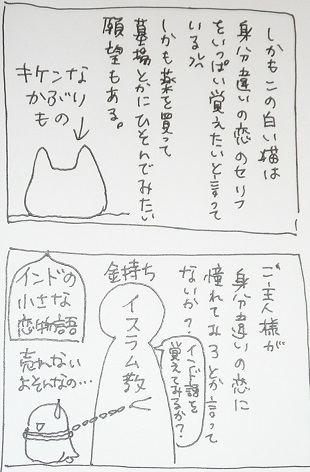 しかもこの白い猫は
身分違いの恋のセリフ
をいっぱい覚えたいと言って
いる
しかも薬を買って
墓場とかにひそんでみたい
願望もある。
キケンなり
かぶの
もの
ご主人様が
身分違いの恋に
憧れてみろとか言って
ないか？
インド語を
覚えてみるか？
金持ち
イスラム教
インドの
小さな
恋物語
売れない
おそんなの…